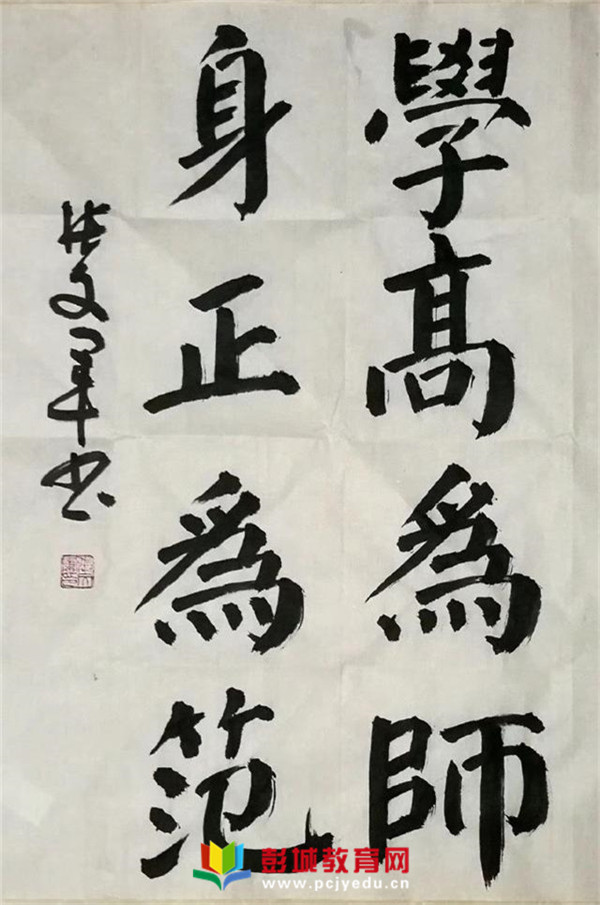 學髙爲師
身正爲笵
张文军书
彭城教育网
www.pcjyedu.cn